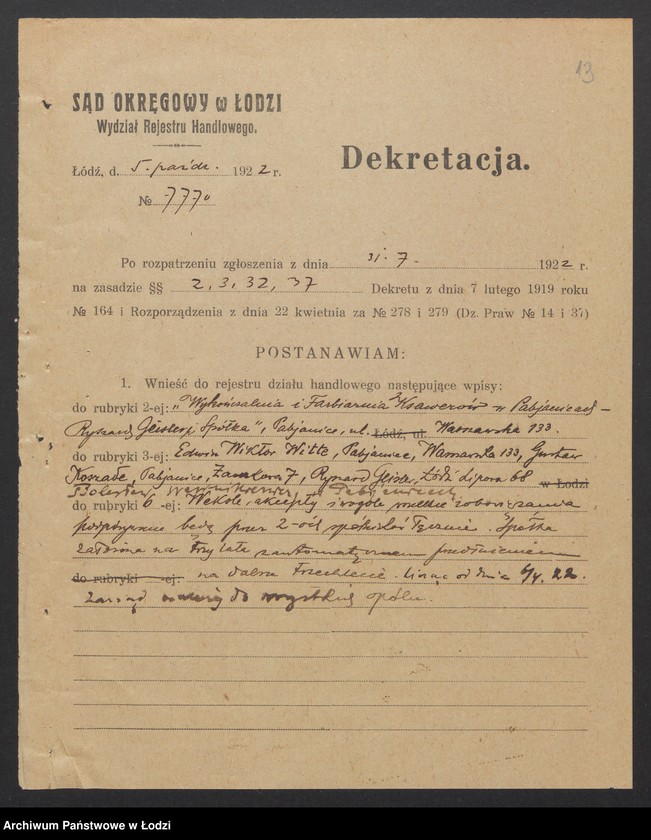 13
SĄD OKRĘGOWY w ŁODZI
Wydział Rejestru Handlowego.
Dekretacja.
Łódź, d. 5. paźdz. 1922 r.
№ 7770
Po rozpatrzeniu zgłoszenia z dnia 31. 7. 1922 r.
na zasadzie §§ 2, 3, 32, 37 Dekretu z dnia 7 lutego 1919 roku
№ 164 i Rozporządzenia z dnia 22 kwietnia za № 278 i 279 (Dz. Praw № 14 i 37)
POSTANAWIAM:
1. Wnieść do rejestru działu handlowego następujące wpisy:
do rubryki 2-ej: „Wykończalnia i Farbiarnia Ksawerów w Pabjanicach –
Ryszard Geisler i Spółka", Pabjanice, ul. Łódź, ul. Warszawska 133.
do rubryki 3-ej: Edwin Wiktor Witte, Pabjanice, Warszawska 133, Gustaw
Pabjanice, Zamkowa 7, Ryszard Geisler, Łódź Lipowa 68 w Łodzi
Bolesław z Pabjanic
do rubryki 6-ej: Weksle, akcepty i wogóle wszelkie zobowiązania
podpisywane będą przez 2-ch spólników łącznie. Spółka
zawarta na trzy lata z automatycznem przedłużeniem
do rubryki -ej: na dalsze trzechlecie. Licząc od dnia 22.
Zarząd należy do wszystkich spóln.
Archiwum Państwowe w Łodzi